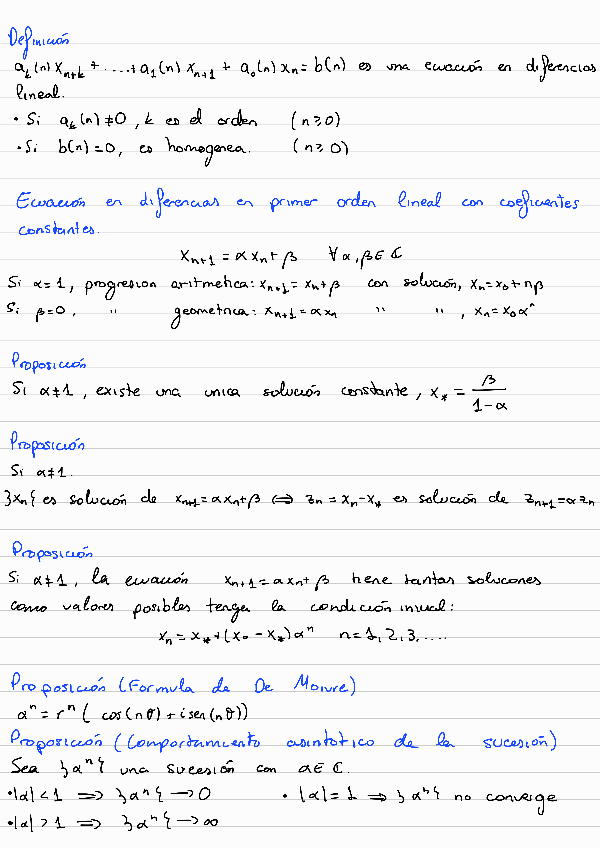 Definición
a_k(n) x_{n+k} + ....+ a_1(n) x_{n+1} + a_0(n) x_n = b(n) es una ecuación en diferencias
lineal.
• Si a_k(n) ≠ 0, k es el orden (n ≥ 0)
• Si b(n) = 0, es homogenea. (n ≥ 0)
Ecuación en diferencias en primer orden lineal con coeficientes
constantes.
x_{n+1} = α x_n + β ∀ α, β ∈ ℂ
Si α = 1, progresion aritmetica: x_{n+1} = x_n + β con solución, x_n = x_0 + nβ
Si β = 0, " geometrica: x_{n+1} = α x_n " ", x_n = x_0 α^n
Proposición
Si α ≠ 1, existe una unica solución constante, x_* = β / (1-α)
Proposición
Si α ≠ 1.
}x_n{ es solución de x_{n+1} = α x_n + β ⟺ z_n = x_n - x_* es solución de z_{n+1} = α z_n
Proposición
Si α ≠ 1, la ecuación x_{n+1} = α x_n + β tiene tantas soluciones
como valores posibles tenga la condición inicial:
x_n = x_* + (x_0 - x_*) α^n n = 1, 2, 3, ....
Proposición (Formula de De Moivre)
α^n = r^n ( cos(nθ) + i sen(nθ))
Proposición (Comportamiento asintotico de la sucesión)
Sea }α^n{ una sucesión con α ∈ ℂ.
• |α| < 1 ⟹ }α^n{ → 0 • |α| = 1 ⟹ }α^n{ no converge
• |α| > 1 ⟹ }α^n{ → ∞